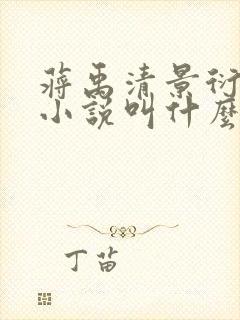 蒋禹清景衍
小说叫什麼
丁苗